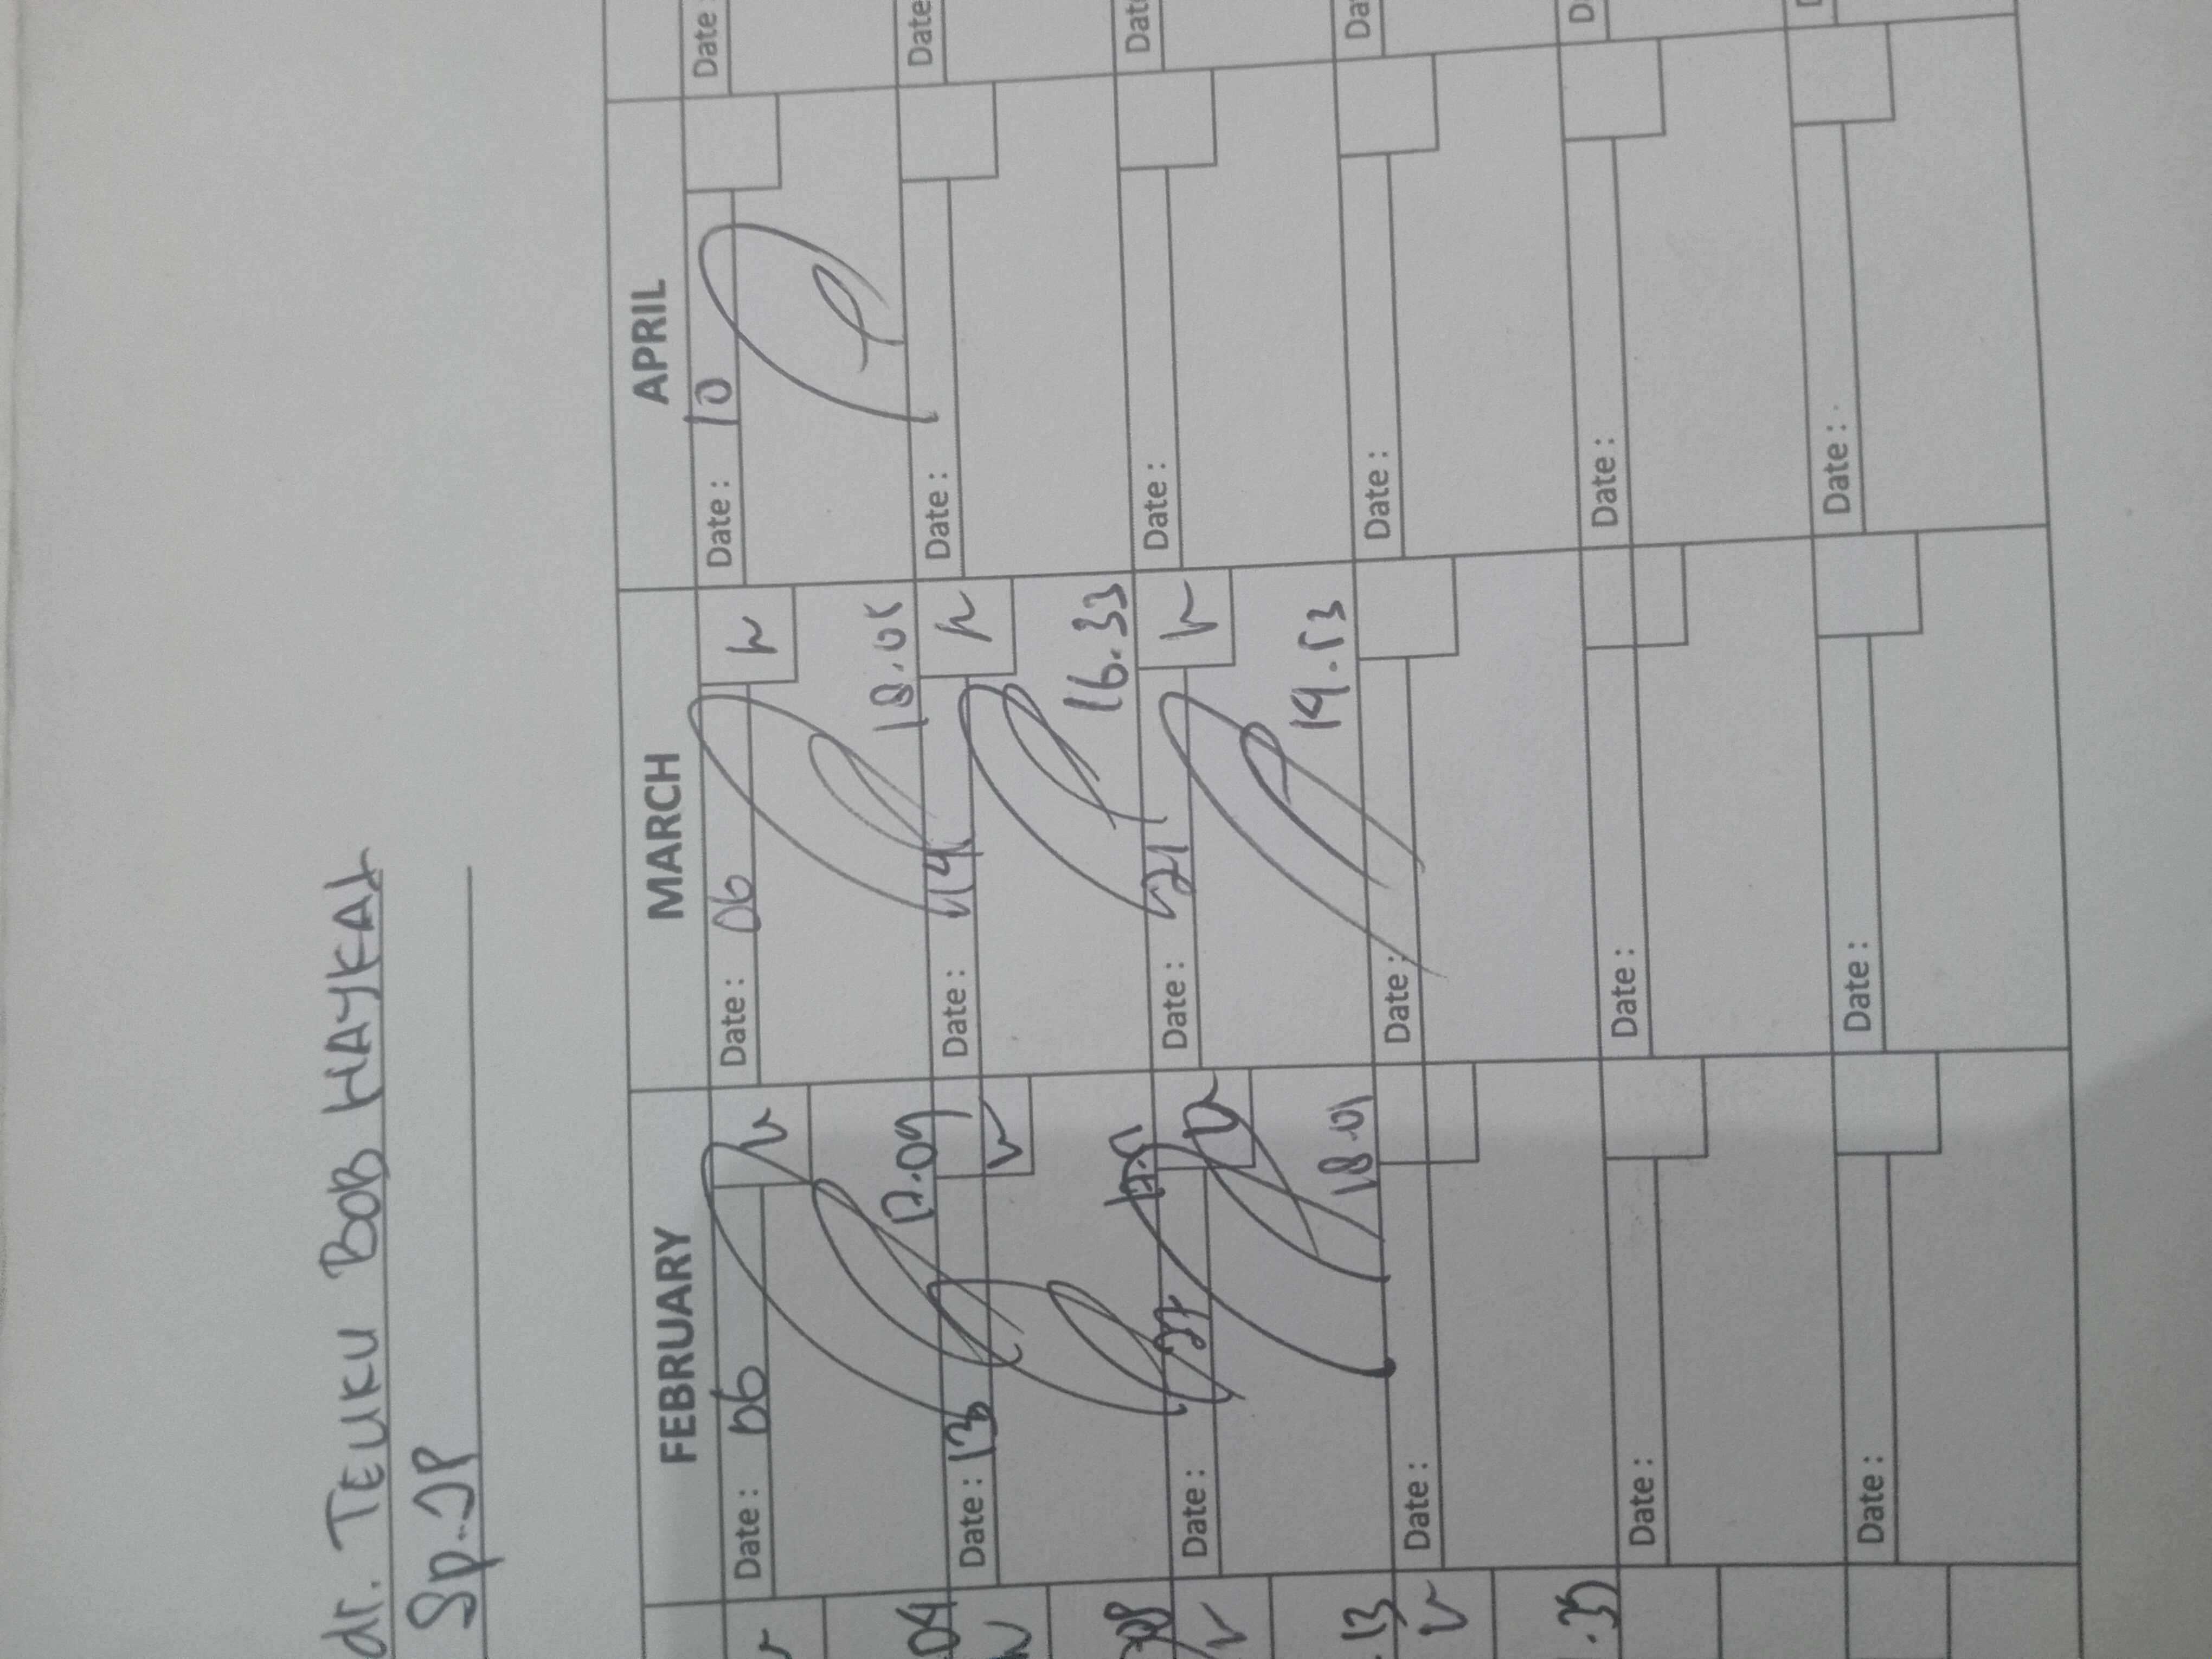 dr. TEUKU BOB HAYKAL
Sp.JP
FEBRUARY MARCH APRIL
Date: 06 Date: 06 Date: 10 Date:
18.05
Date: 13 Date: 14 Date: Date
04 16.33
Date: Date: 21 Date: Dat
18.01 19.53
Date: Date: Date: Da
.13
Date: Date: Date: D
.35
Date: Date: Date: